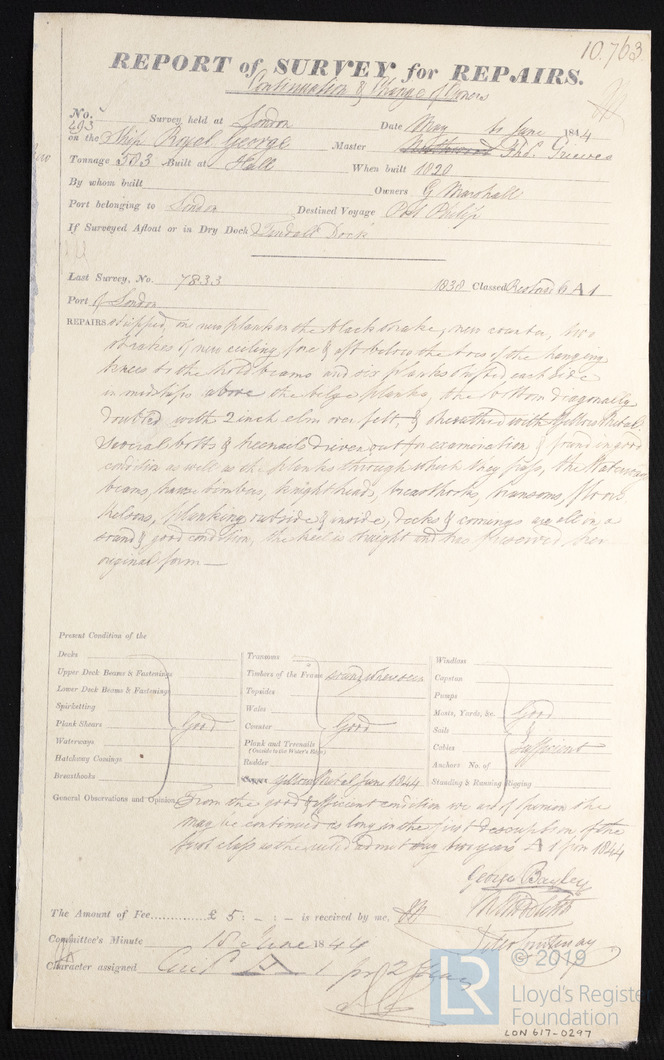 10.763
REPORT of SURVEY for REPAIRS.
Continuation & Change of Owners
No. 493 Survey held at London Date May to June 1844
on the Ship Royal George Master Thos. Greeves
Tonnage 583 Built at Hull When built 1820
By whom built Owners G Marshall
Port belonging to London Destined Voyage Port Philip
If Surveyed Afloat or in Dry Dock Dock
Last Survey, No. 7833 1838 Classed Restored 6 A 1
Port of London
REPAIRS. Stripped, on new plank on the black strake, new counter, two
strakes of new ceiling fore & aft below the toes of the hanging
knees to the hold beams and six planks shifted each side
in midships above the bilge planks, the bottom diagonally
doubled with 2 inch elm over felt, & sheathed with Yellow Metal,
Several bolts & treenails driven out for examination & found in good
condition as well as the planks through which they pass, the Waterways
beams, hawse timbers, knightheads, breasthooks, transoms, floors
kelsons, planking outside & inside, decks & comings are all in a
sound & good condition, the keel is straight and has preserved her
original form —
Present Condition of the
Decks
Upper Deck Beams & Fastenings
Lower Deck Beams & Fastenings
Spirketting
Plank Shears Good
Waterways
Hatchway Coamings
Breasthooks
Transoms
Timbers of the Frame sound where seen
Topsides
Wales
Counter Good
Plank and Treenails
(Outside to the Water's Edge)
Rudder
Yellow Metal June 1844
Windlass
Capstan
Pumps
Masts, Yards, &c. Good
Sails &
Cables Sufficient
Anchors No. of
Standing & Running Rigging
General Observations and Opinion From the good & efficient condition we are of opinion she
may be continued as long in the first description of the
first class as the rules admit say two years A 1 from 1844
George Bayley
The Amount of Fee............£ 5 : - : - is received by me,
Committee's Minute 18 June 1844
Character assigned A 1 for 2 Years
© 2019
LR
Lloyd's Register
Foundation
LON 617-0297